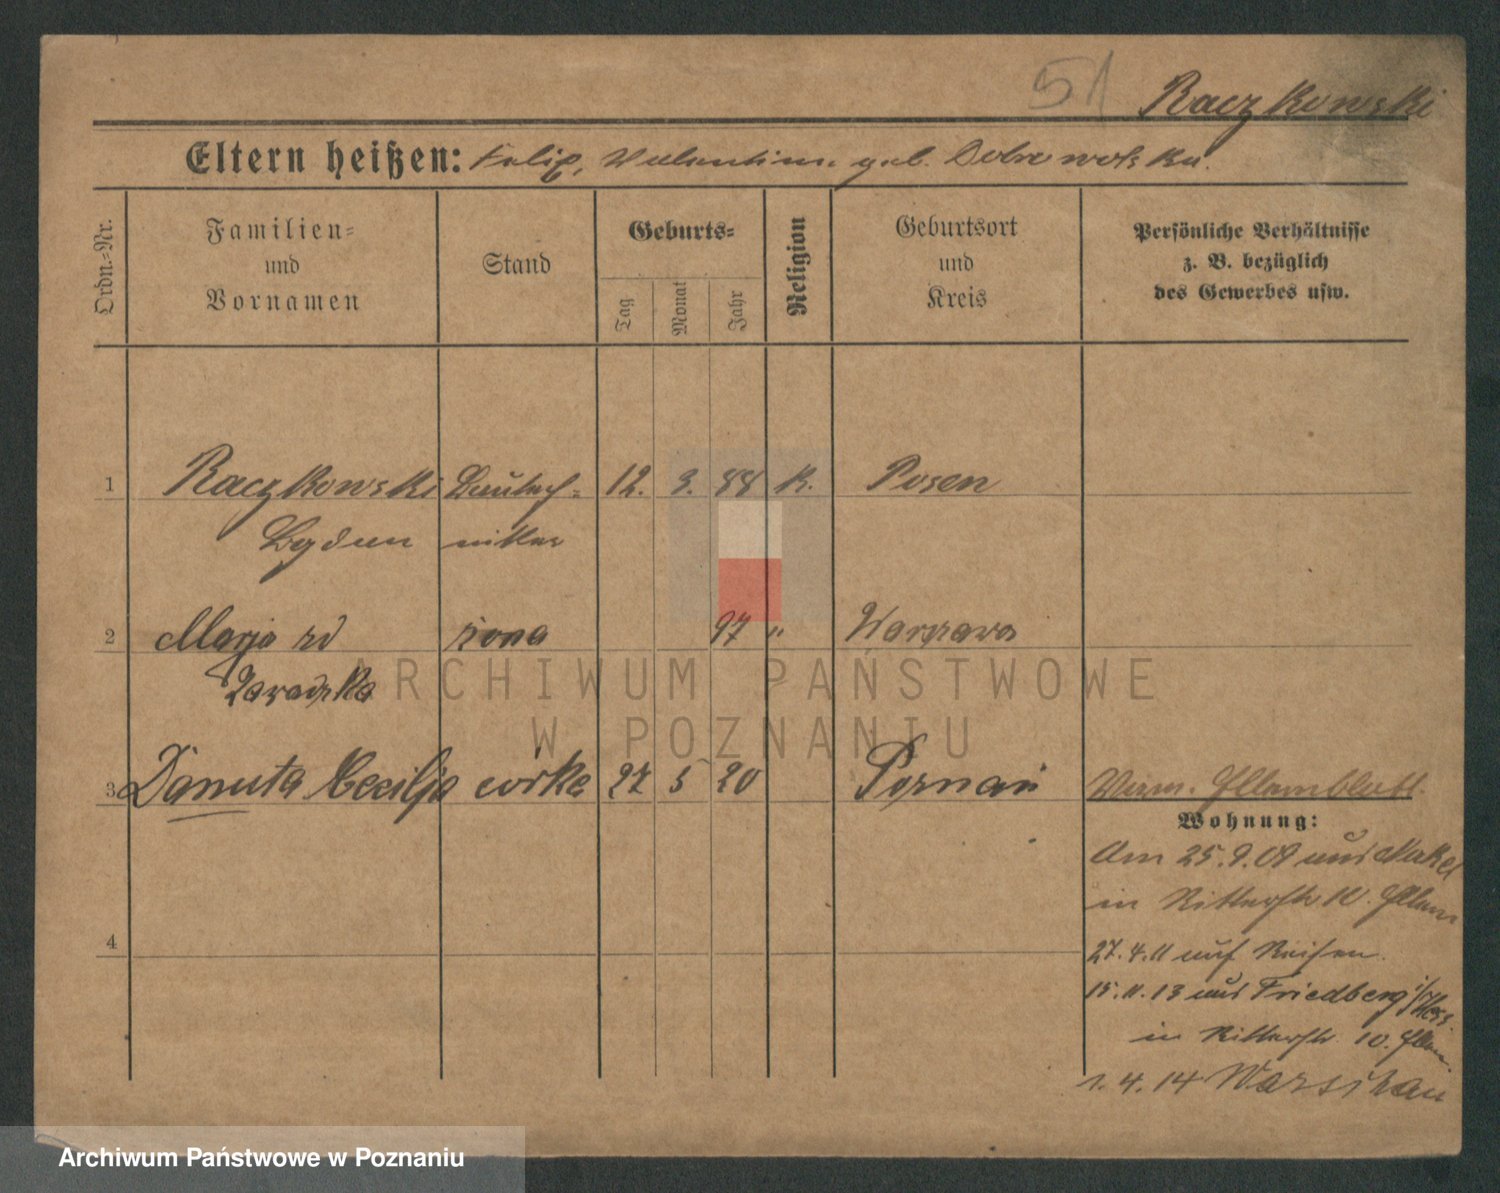 51
Raczkowski
Eltern heißen: Felix, Valentine geb. Dobrowolska.
Ordn.-Nr.
Familien-
und
Vornamen
Stand
Geburts-
Tag
Monat
Jahr
Religion
Geburtsort
und
Kreis
Persönliche Verhältnisse
z. B. bezüglich
des Gewerbes usw.
1 Raczkowski 12. 3. 88 K. Posen
2 Marja żona 97 " Warszawa
Zawadzka
3 Danuta Cecilja córka 27 5 20 Poznań
Wohnung:
Am 25.9.09 aus Nakel
in Ritterstr 10. Eltern
4
27.4.11 auf Reisen.
15.11.13 aus Friedberg i/Hess.
in Ritterstr. 10. Eltern.
1.4.14 Warschau
ARCHIWUM PAŃSTWOWE
W POZNANIU
Archiwum Państwowe w Poznaniu